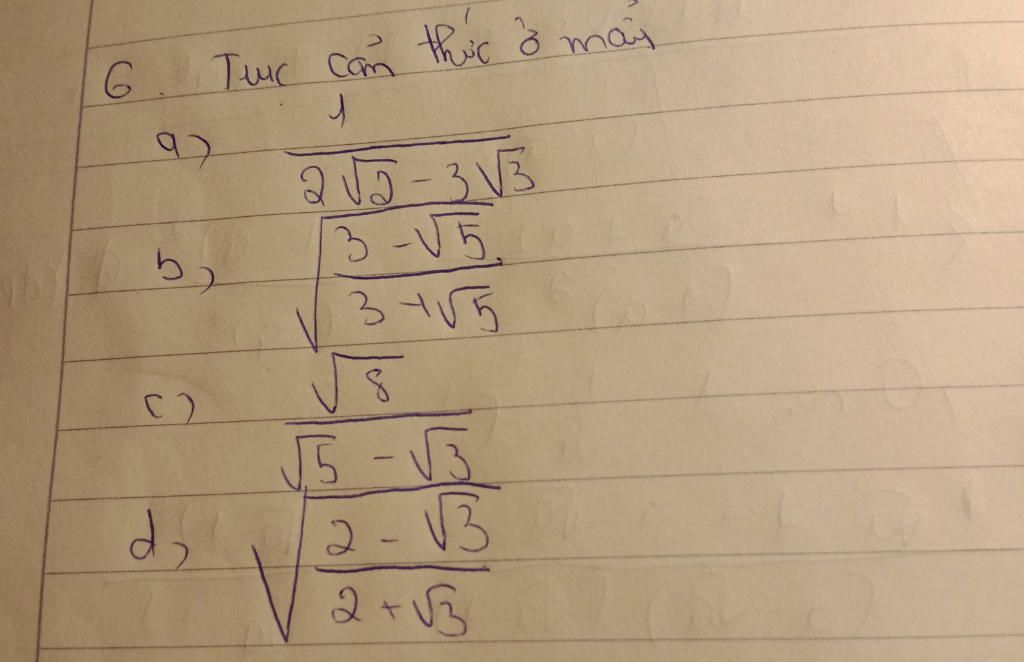 6. Trục căn thức ở mẫu
a) 1 / (2√2 - 3√3)
b) √((3 - √5) / (3 + √5))
c) √8 / (√5 - √3)
d) √((2 - √3) / (2 + √3))